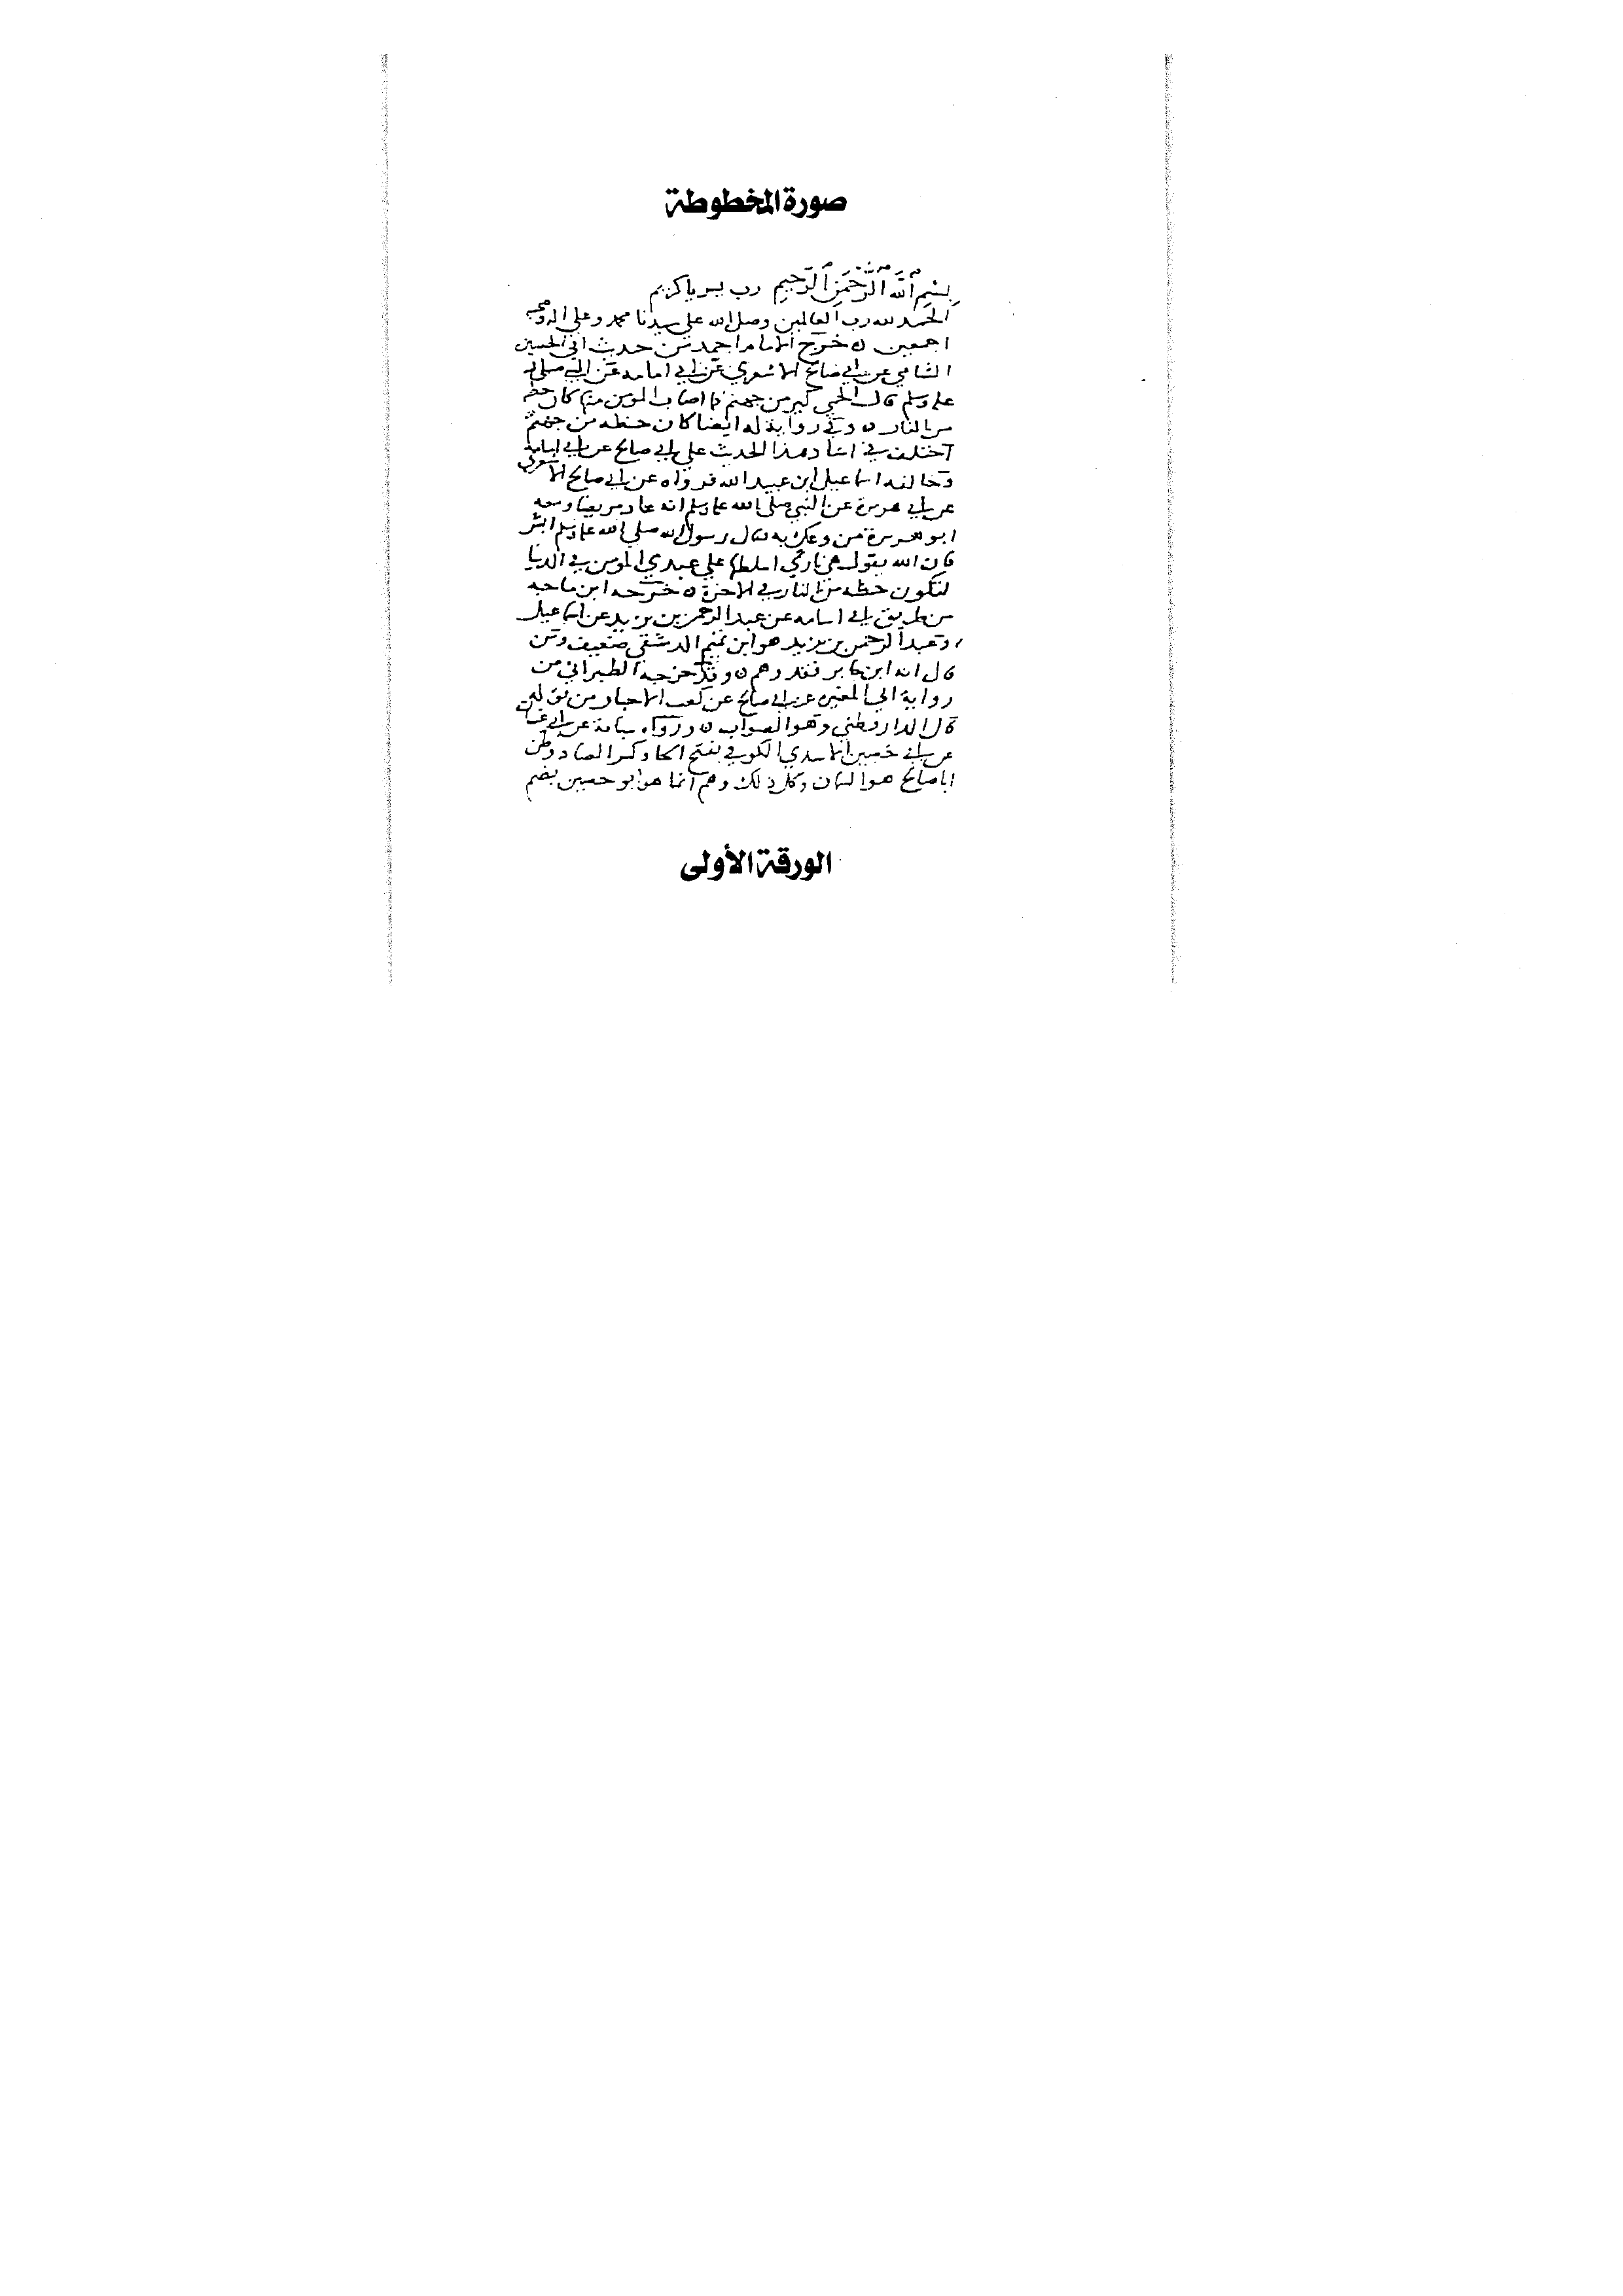 صورة المخطوطة
بسم الله الرحمن الرحيم رب يسر يا كريم
الحمد لله رب العالمين وصلى الله على سيدنا محمد وعلى اله وصحبه
اجمعين خرج الامام احمد من حديث ابي الحسين
الشامي عن ابي صالح الاشعري عن ابي امامه عن النبي صلى الله
عليه وسلم قال الحمى كير من جهنم فما اصاب المومن منها كان حظه
من النار وفي رواية له ايضا كان حظه من جهنم
اختلف في اسناد هذا الحديث على ابي صالح عن ابي امامة
وخالفه اسماعيل ابن عبيد الله فرواه عن ابي صالح الاشعري
عن ابي هريرة عن النبي صلى الله عليه وسلم انه عاد مريضا ومعه
ابو هريرة من وعك به فقال رسول الله صلى الله عليه وسلم ابشر
فان الله يقول هي ناري اسلطها على عبدي المومن في الدنيا
لتكون حظه من النار في الاخرة خرجه ابن ماجه
من طريق ابي اسامه عن عبد الرحمن بن يزيد عن اسماعيل
وعبد الرحمن بن يزيد هو ابن تميم الدمشقي ضعيف ومن
قال انه ابن جابر فقد وهم وقد خرجه الطبراني من
رواية ابي المغيره عن ابي صالح عن كعب الاحبار من قوله
قال الدارقطني وهو الصواب ورواه شبابة عن ابي غسان
عن ابي حصين الاسدي الكوفي بفتح الحا وكسر الصاد وظن
ابا صالح هو السمان وكل ذلك وهم انما هو ابو حصين بضم
الورقة الأولى